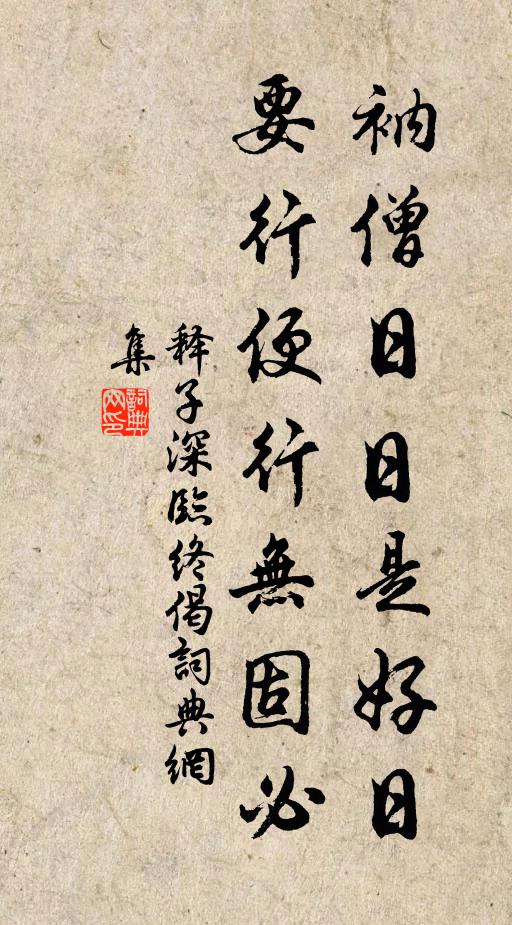 衲僧日日是好日
要行便行無固必
釋子深臨終偈詞典網
集
詞典
网印